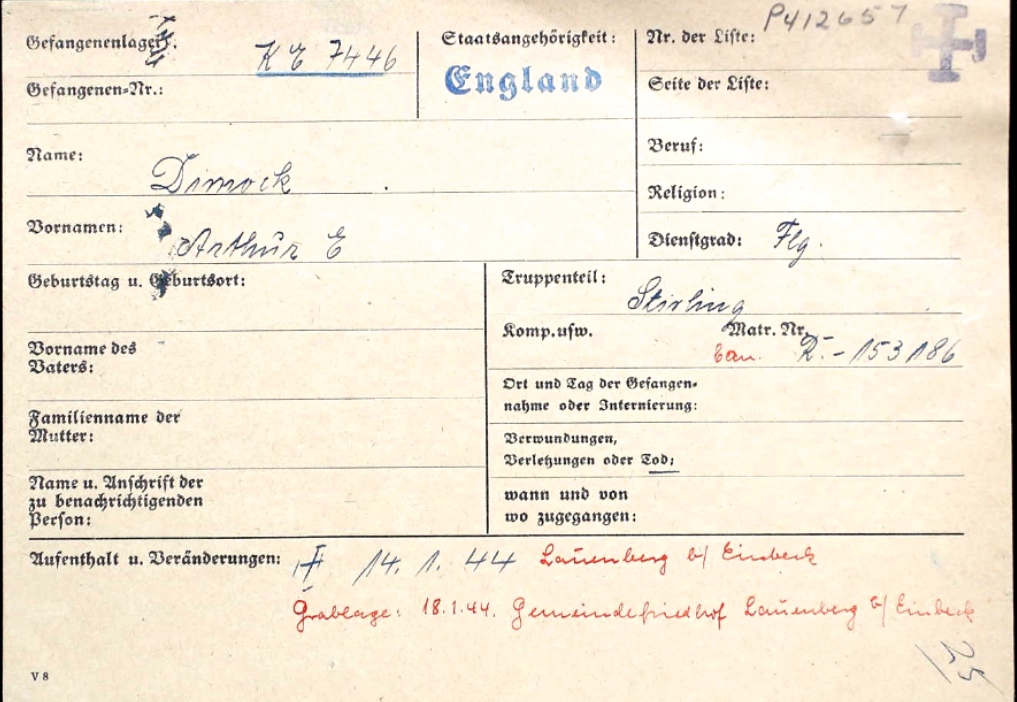 P412657
Gefangenenlager: KE 7446
Staatsangehörigkeit:
England
Nr. der Liste:
Gefangenen-Nr.:
Seite der Liste:
Name: Dimock
Beruf:
Religion:
Vornamen: Arthur E
Dienstgrad: Flg.
Geburtstag u. Geburtsort:
Truppenteil: Stirling
Komp.usw. Matr. Nr.
can. R.-153186
Vorname des
Vaters:
Ort und Tag der Gefangen-
nahme oder Internierung:
Familienname der
Mutter:
Verwundungen,
Verletzungen oder Tod:
Name u. Anschrift der
zu benachrichtigenden
Person:
wann und von
wo zugegangen:
Aufenthalt u. Veränderungen: 14. 1. 44 Lauenberg b/ Einbeck
Grablage: 18.1.44. Gemeindefriedhof Lauenberg b/ Einbeck
25
V 8